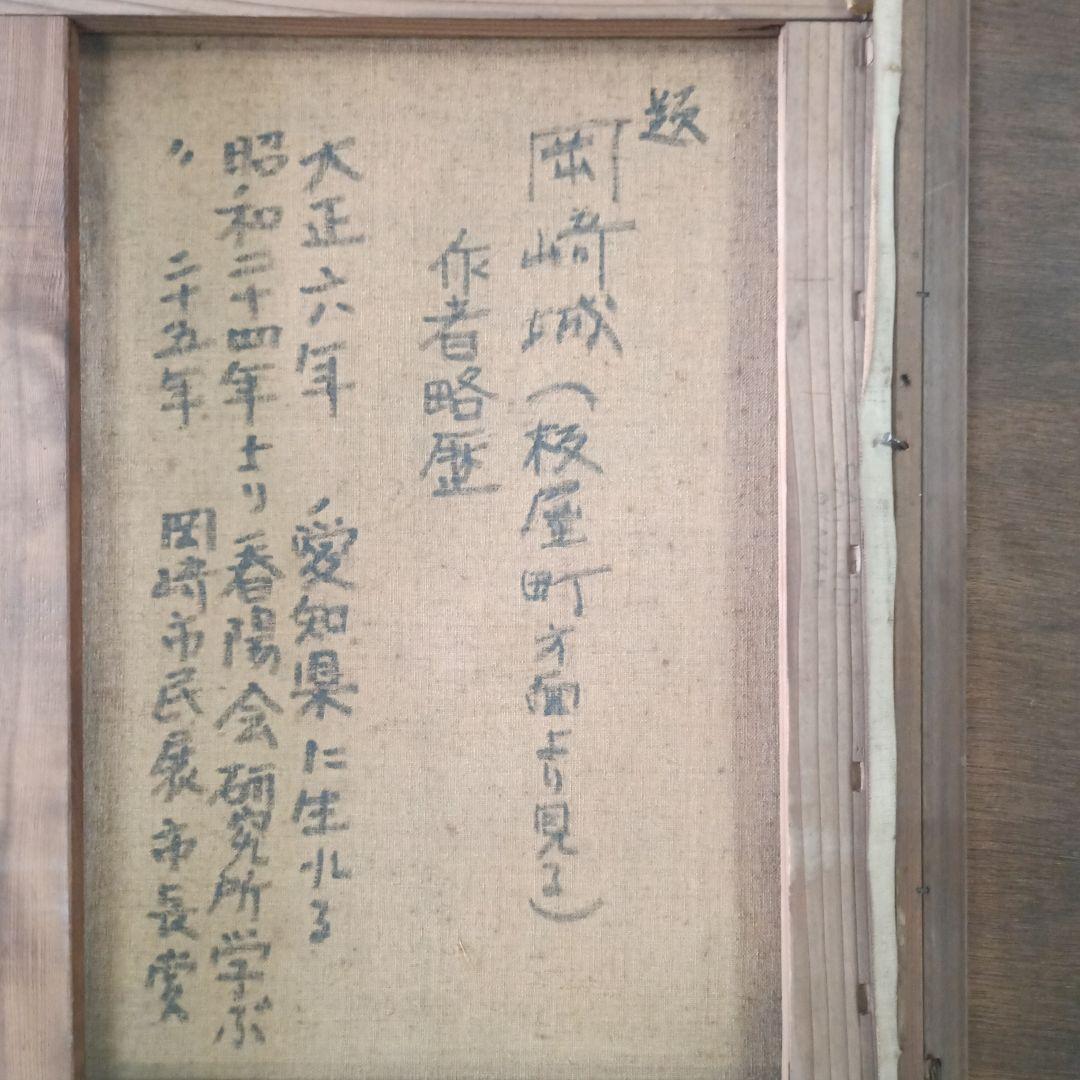 題
岡崎城(板屋町方面より見る)
作者略歴
大正六年 愛知県に生れる
昭和二十四年より春陽会研究所学ぶ
〃 二十五年 岡崎市民展市長賞